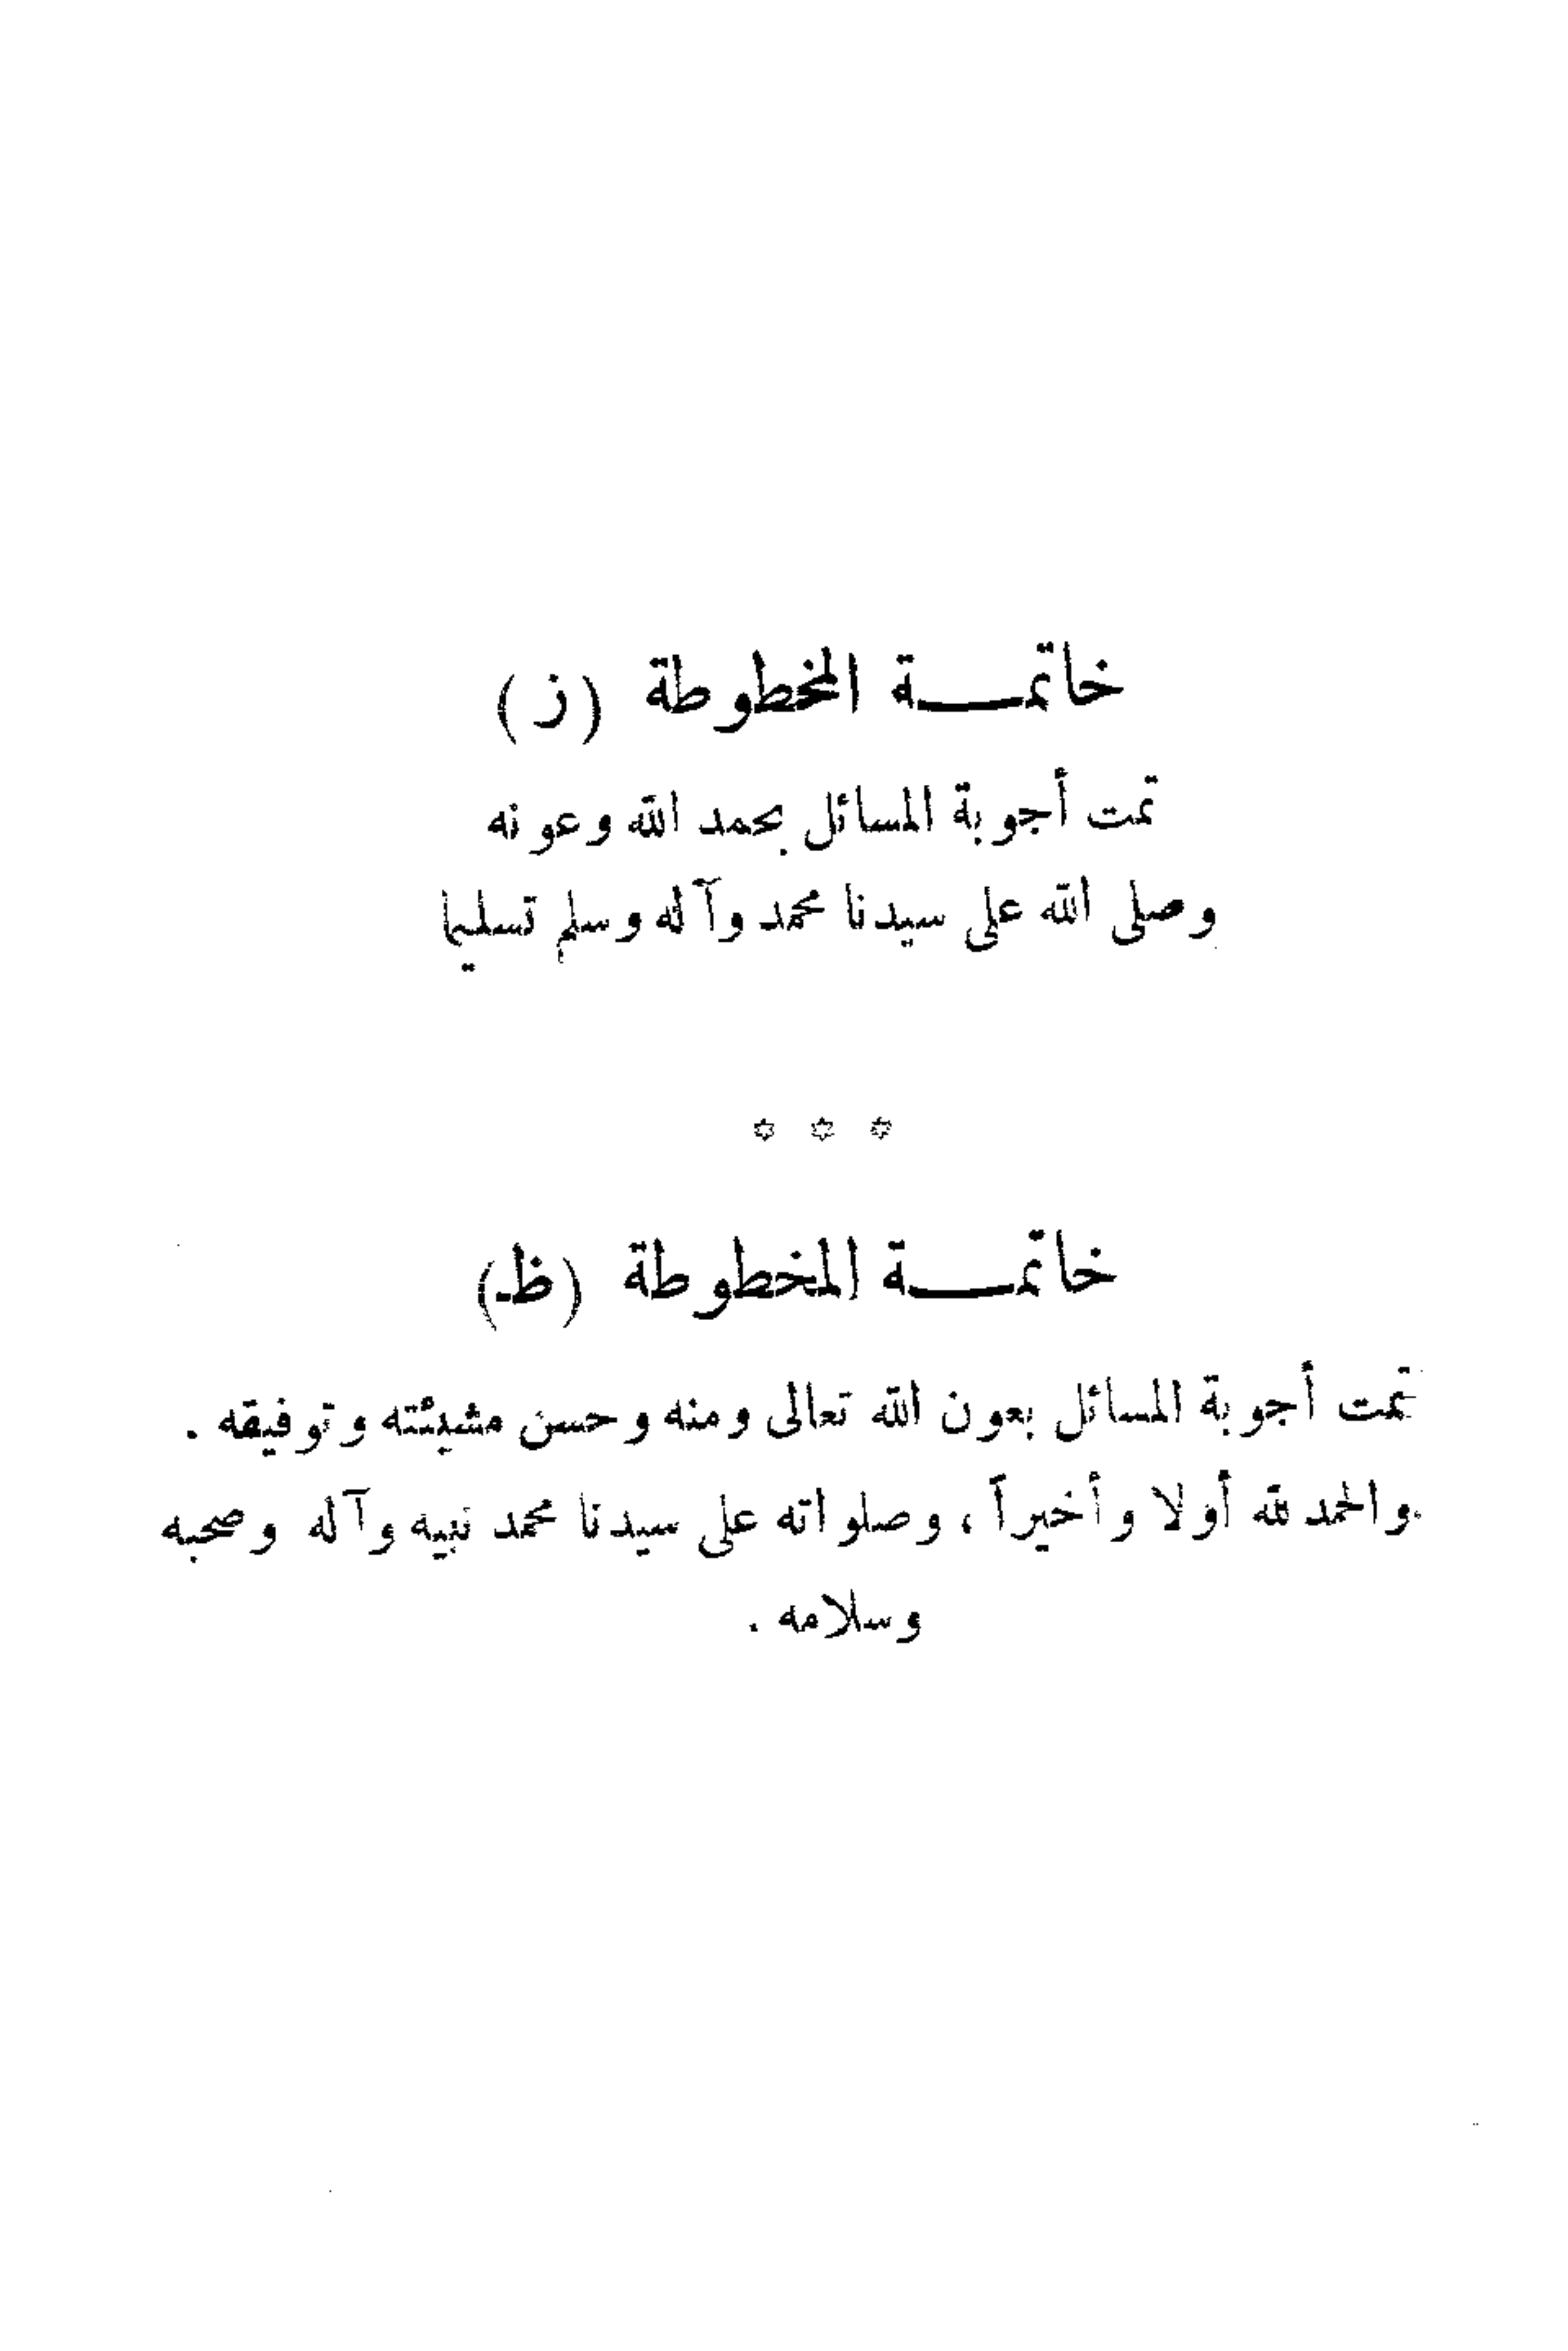 خاتمـــة المخطوطة (ز)
تمت أجوبة المسائل بحمد الله وعونه
وصلى الله على سيدنا محمد وآله وسلم تسليما
* * *
خاتمـــة المخطوطة (ظ)
تمت أجوبة المسائل بعون الله تعالى ومنه وحسن مشيئته وتوفيقه .
والحمد لله أولا وأخيراً ، وصلواته على سيدنا محمد نبيه وآله وصحبه
وسلامه .